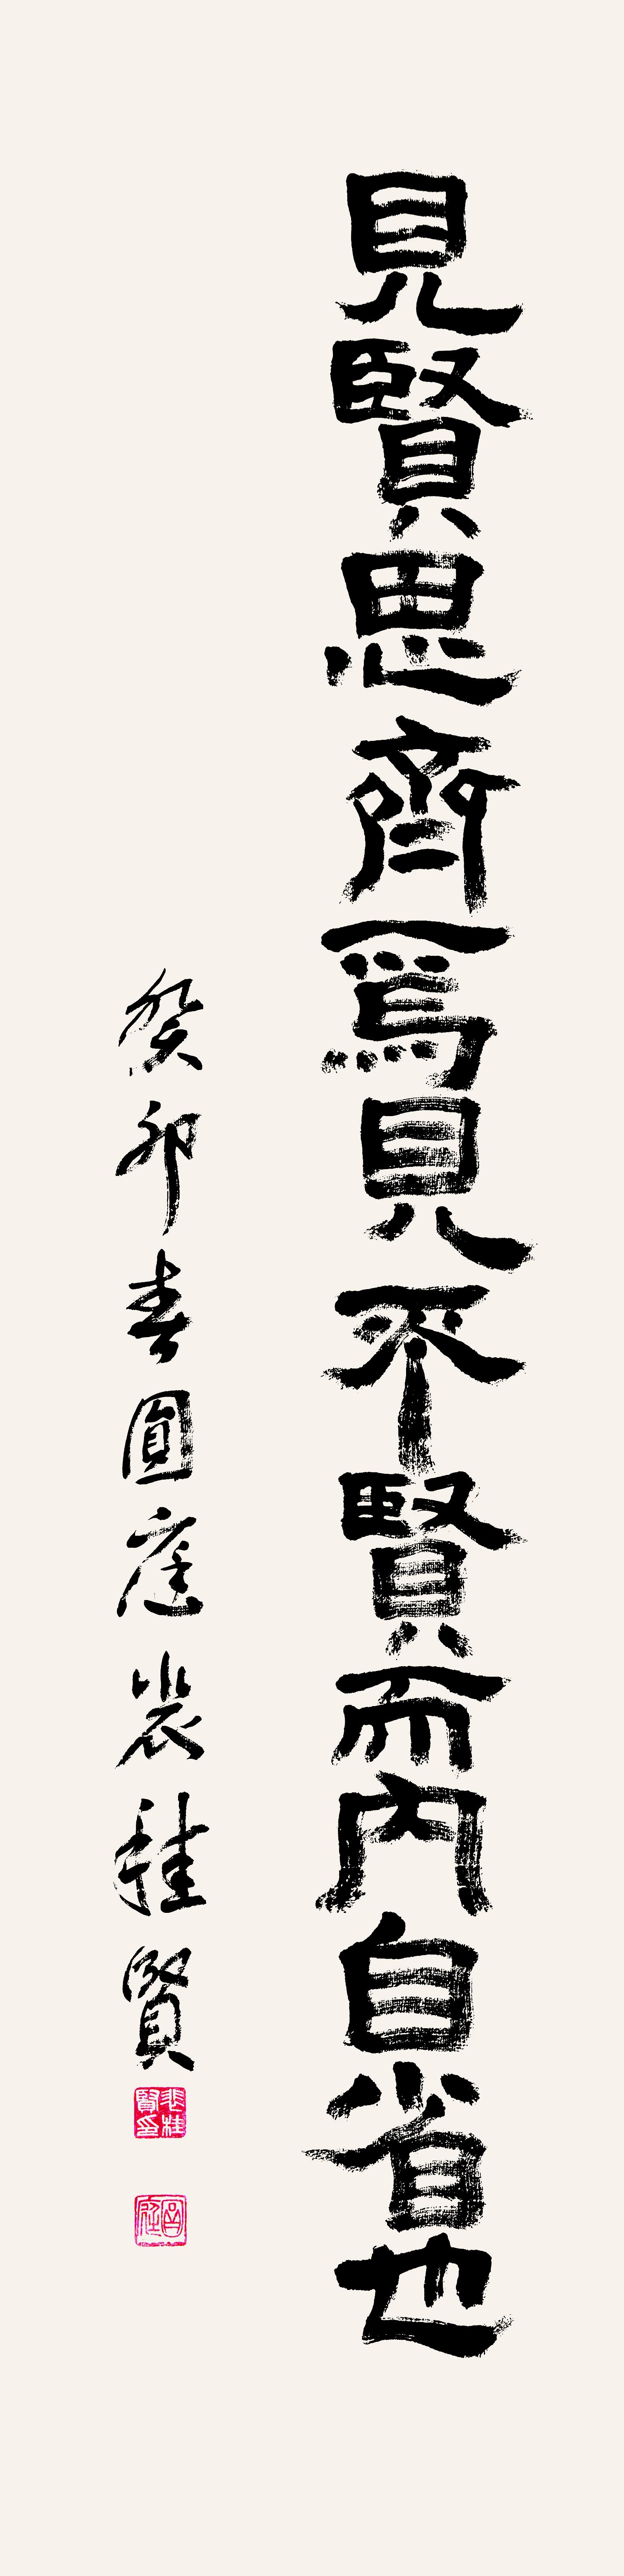 見賢思齊焉見不賢而內自省也
癸卯春圓庭裴桂賢
裴桂賢印
圓庭